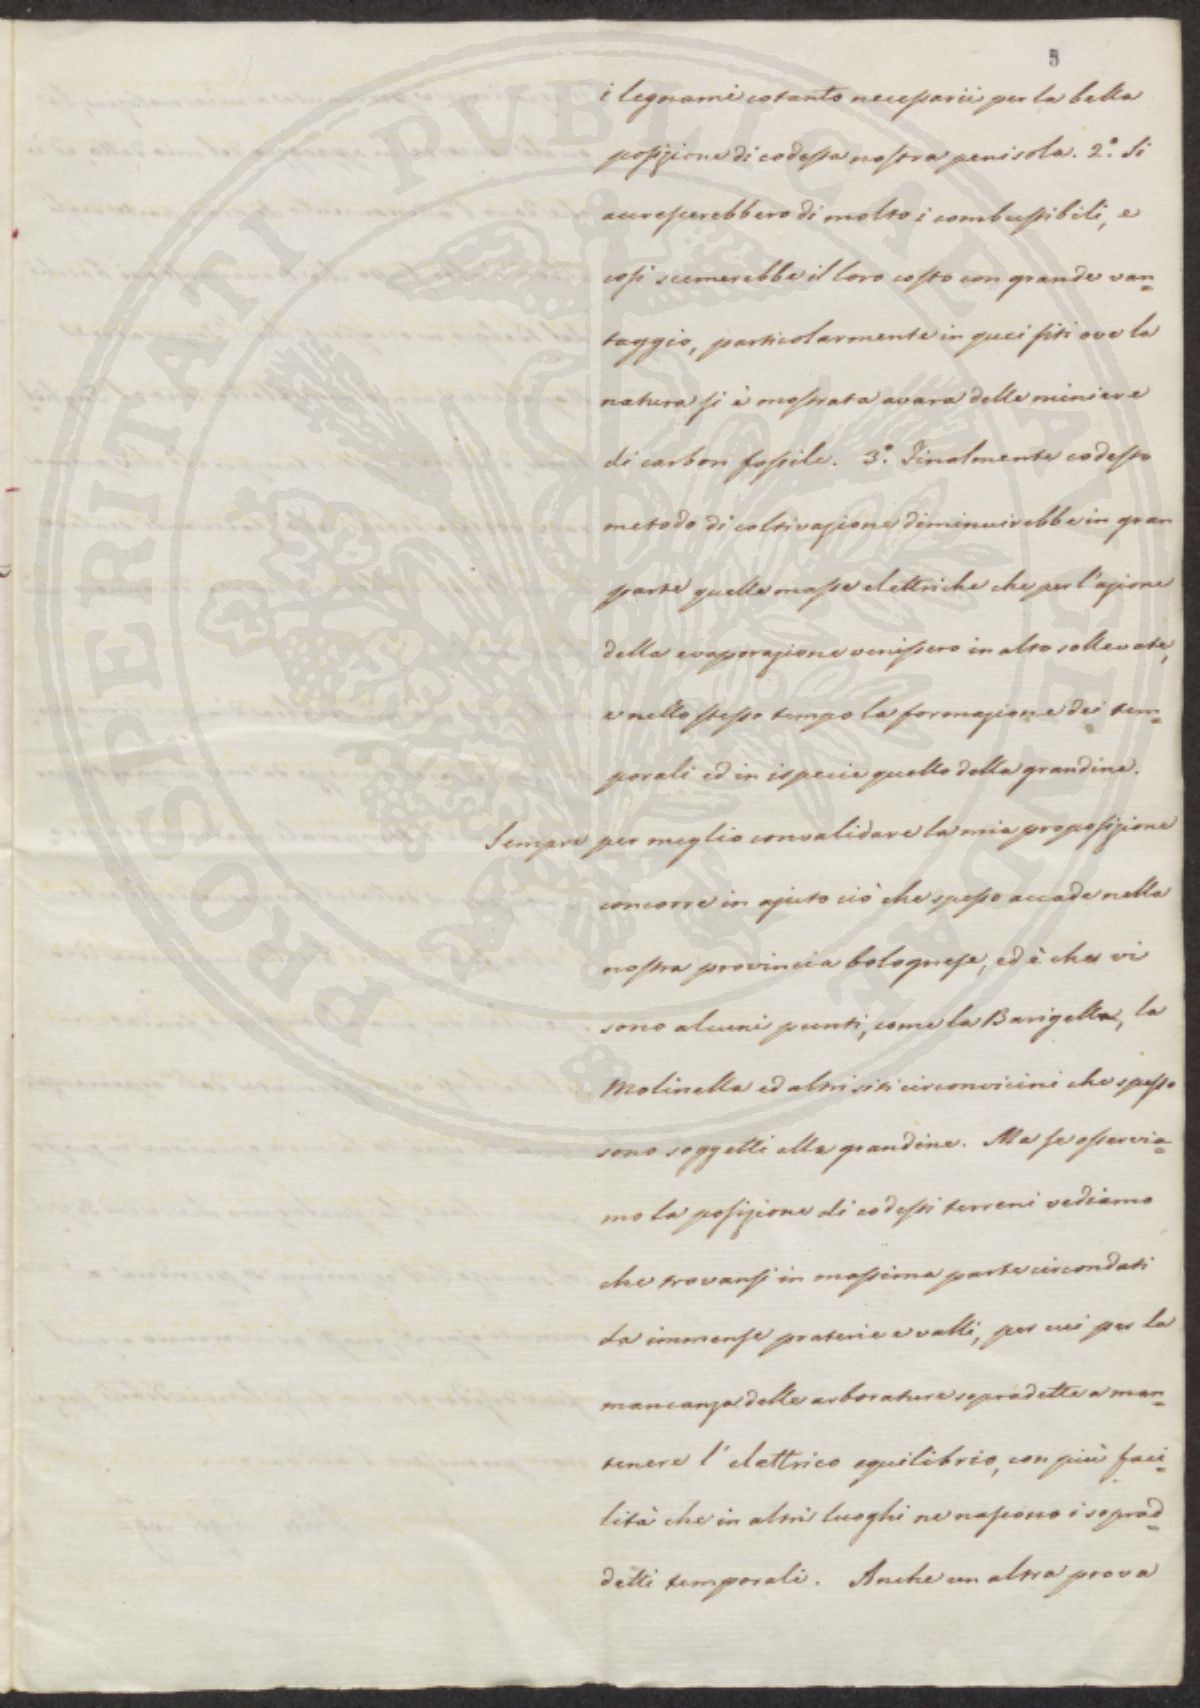 5
i legnami cotanto necessarii per la bella
posizione di codesta nostra penisola. 2.° Si
accrescerebbero di molto i combustibili, e
così scemerebbe il loro costo con grande van=
taggio, particolarmente in quei siti ove la
natura si è mostrata avara delle miniere
di carbon fossile. 3.° Finalmente codesto
metodo di coltivazione diminuirebbe in gran
parte quelle masse elettriche che per l'azione
della evaporazione venissero in alto sollevate,
e nello stesso tempo la formazione dei tem=
porali ed in ispecie quello della grandine.
Sempre per meglio convalidare la mia proposizione
concorre in ajuto ciò che spesso accade nella
nostra provincia bolognese, ed è che vi
sono alcuni punti, come la Barigella, la
Molinella ed altri siti circonvicini che spesso
sono soggetti alla grandine. Ma se osservia=
mo la posizione di codesti terreni vediamo
che trovansi in massima parte circondati
da immense praterie e valli, per cui per la
mancanza delle arborature sopradette a man=
tenere l'elettrico equilibrio, con più faci=
lità che in altri luoghi ne nascono i soprad=
detti temporali. Anche un altra prova
PROSPERITATI PUBLICAE AUGENDAE